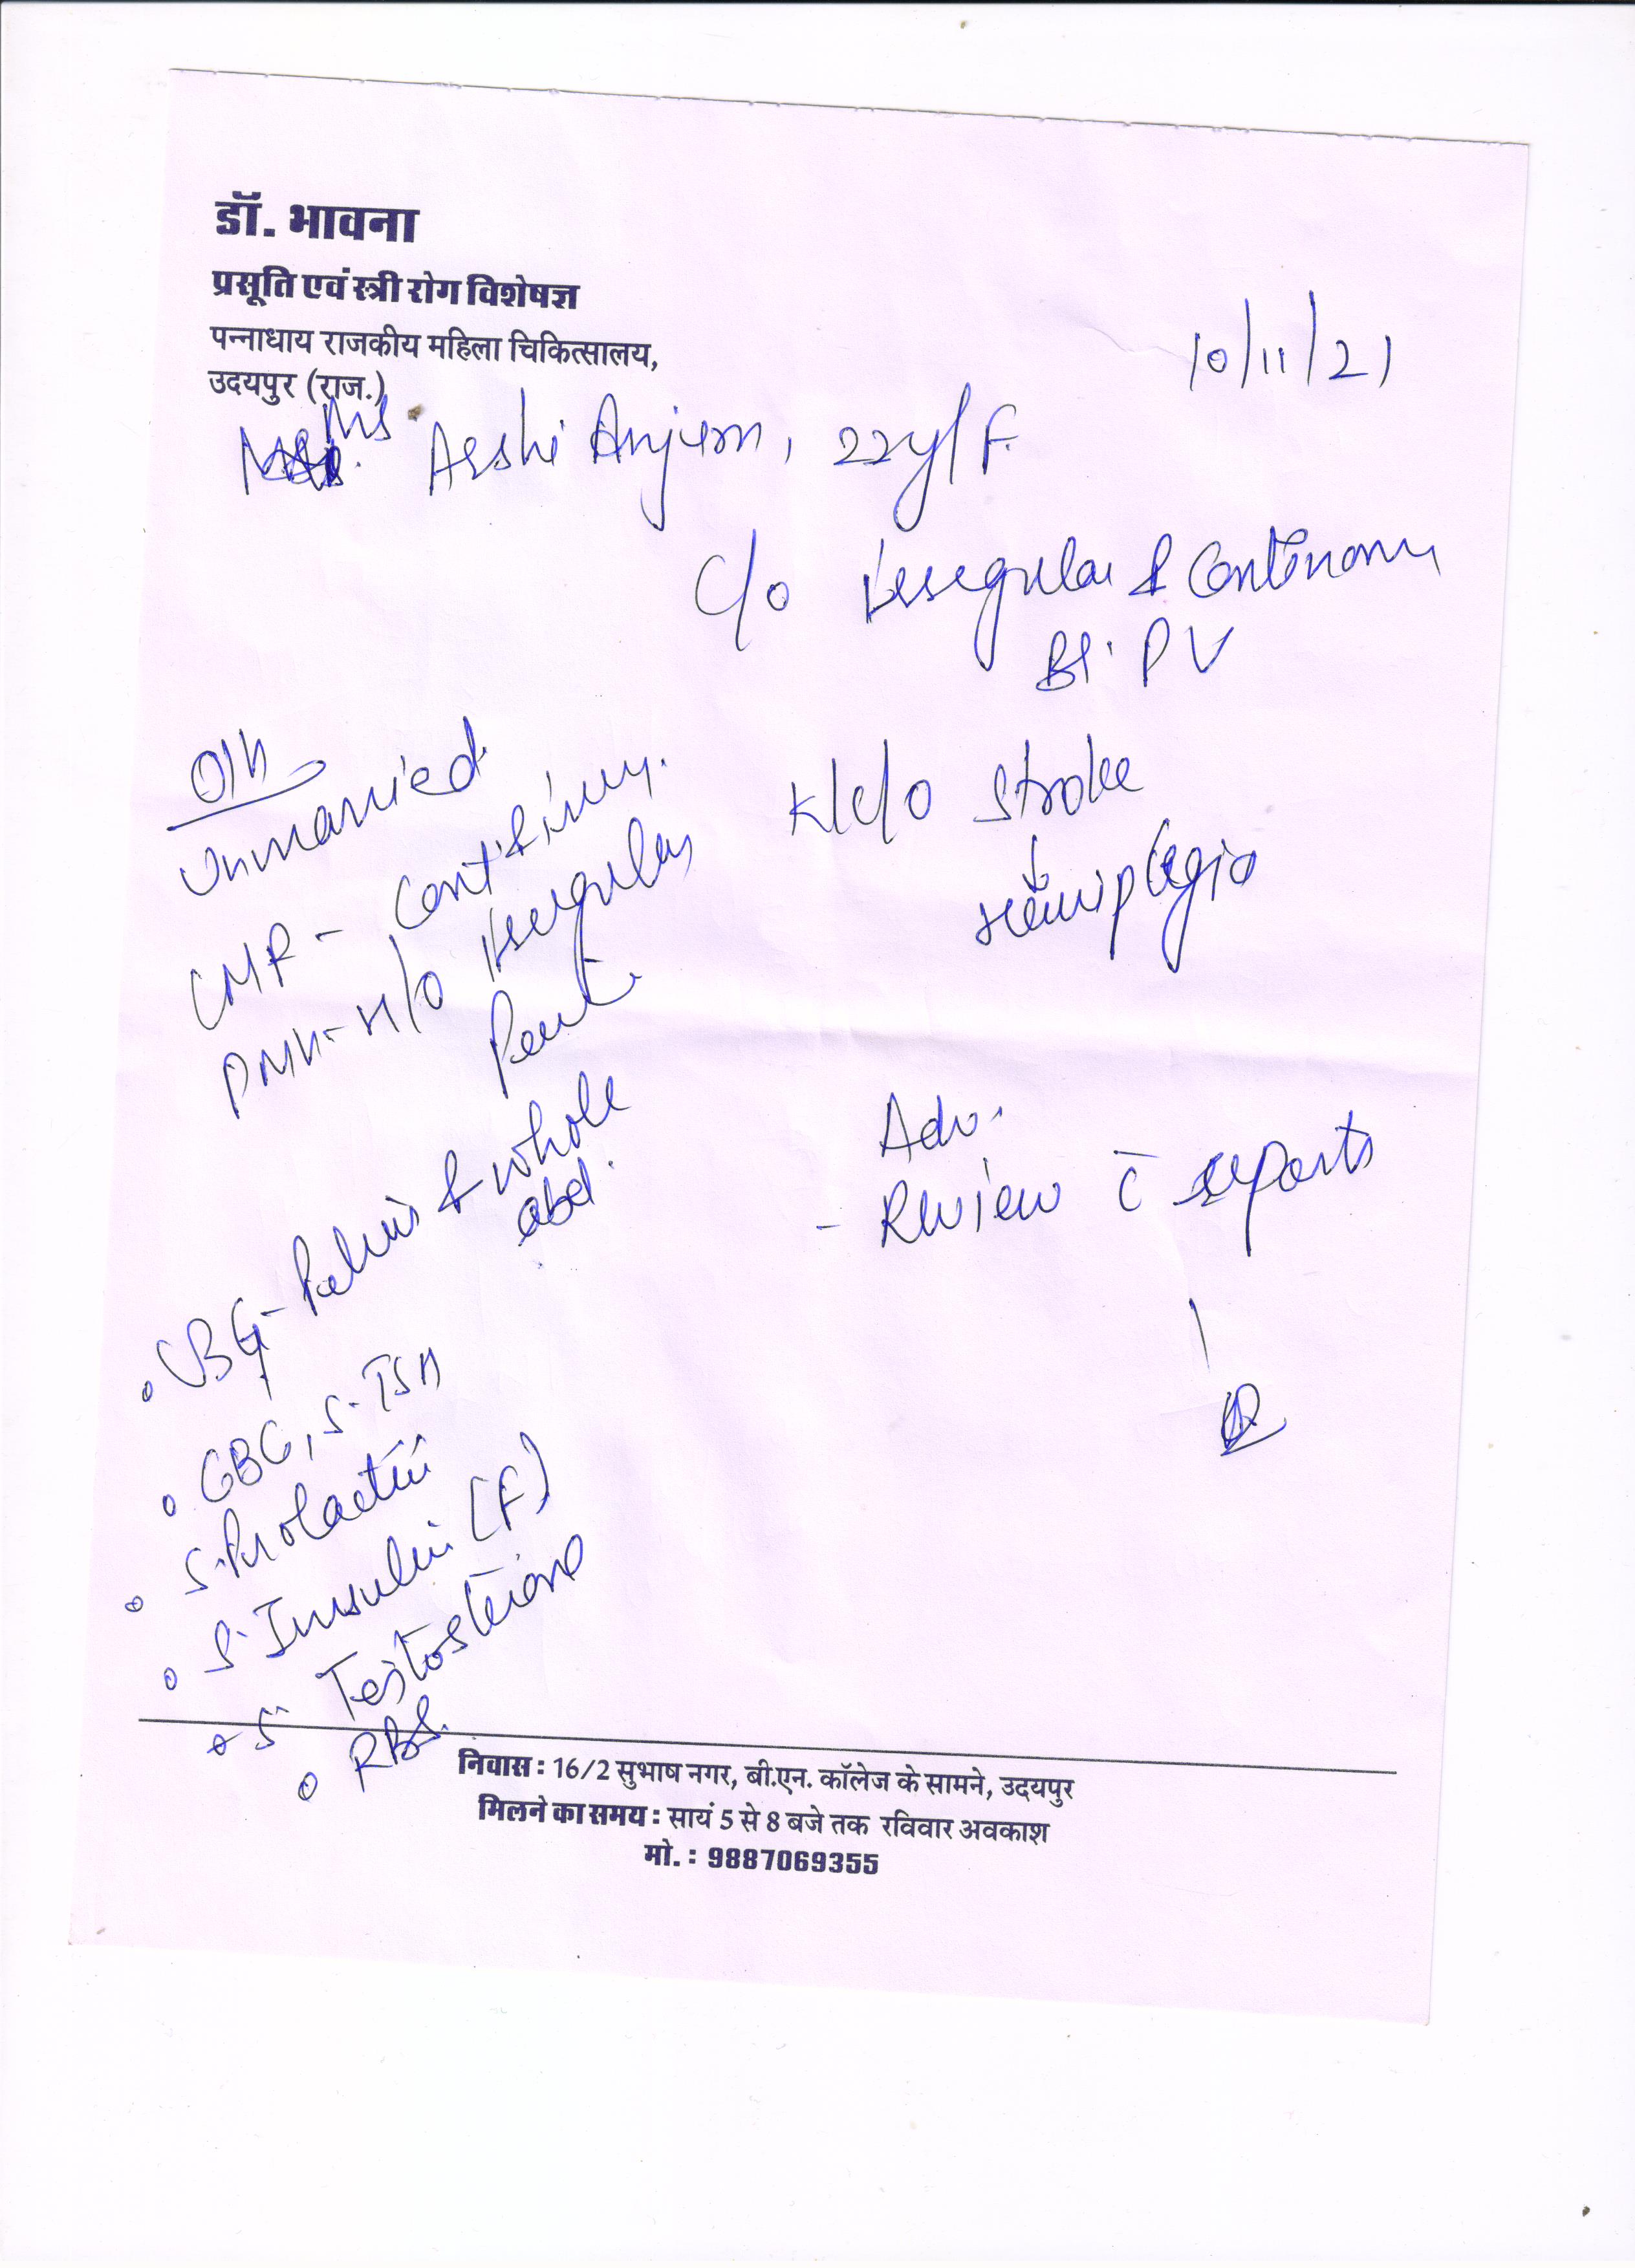 डॉ. भावना
प्रसूति एवं स्त्री रोग विशेषज्ञ
पन्नाधाय राजकीय महिला चिकित्सालय,
उदयपुर (राज.)
10/11/21
Ms. Arshi Anjum, 22y/F.
C/o Irregular & Continuous
Bl. PV
O/H
Unmarried
LMP - Continuous.
PMH - H/O Irregular
K/C/O Stroke
↓
Hemiplegia
USG - Pelvis & whole
abd.
Adv.
- Review c̄ reports
CBC, S. TSH
S. Prolactin
S. Insulin (F)
S. Testosterone
RBS.
निवास : 16/2 सुभाष नगर, बी.एन. कॉलेज के सामने, उदयपुर
मिलने का समय : सायं 5 से 8 बजे तक रविवार अवकाश
मो. : 9887069355